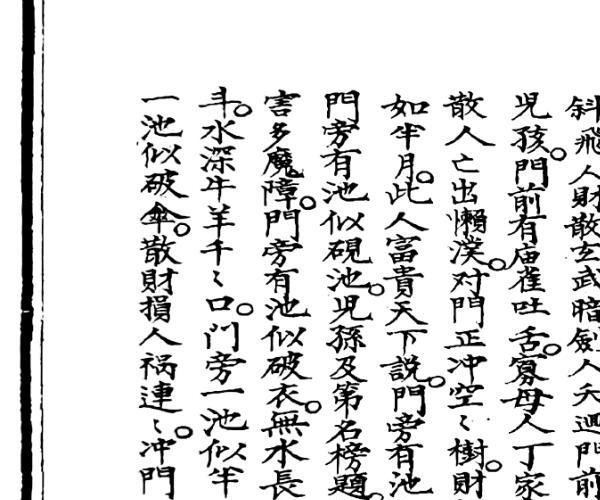 斜飛人財散玄武暗劍人夭迴門前
児孩。門前有庙雀吐舌。寡母人丁家
散人亡出懶漢。对門正冲空〻樹。財
如半月。此人富貴天下説。門旁有池
門旁有池似硯池。児孫及第名榜題。
害多魔障。門旁有池似破衣。無水長
斗。水深牛羊千〻口。门旁一池似半
一池似破傘。散財損人祸連〻。冲門